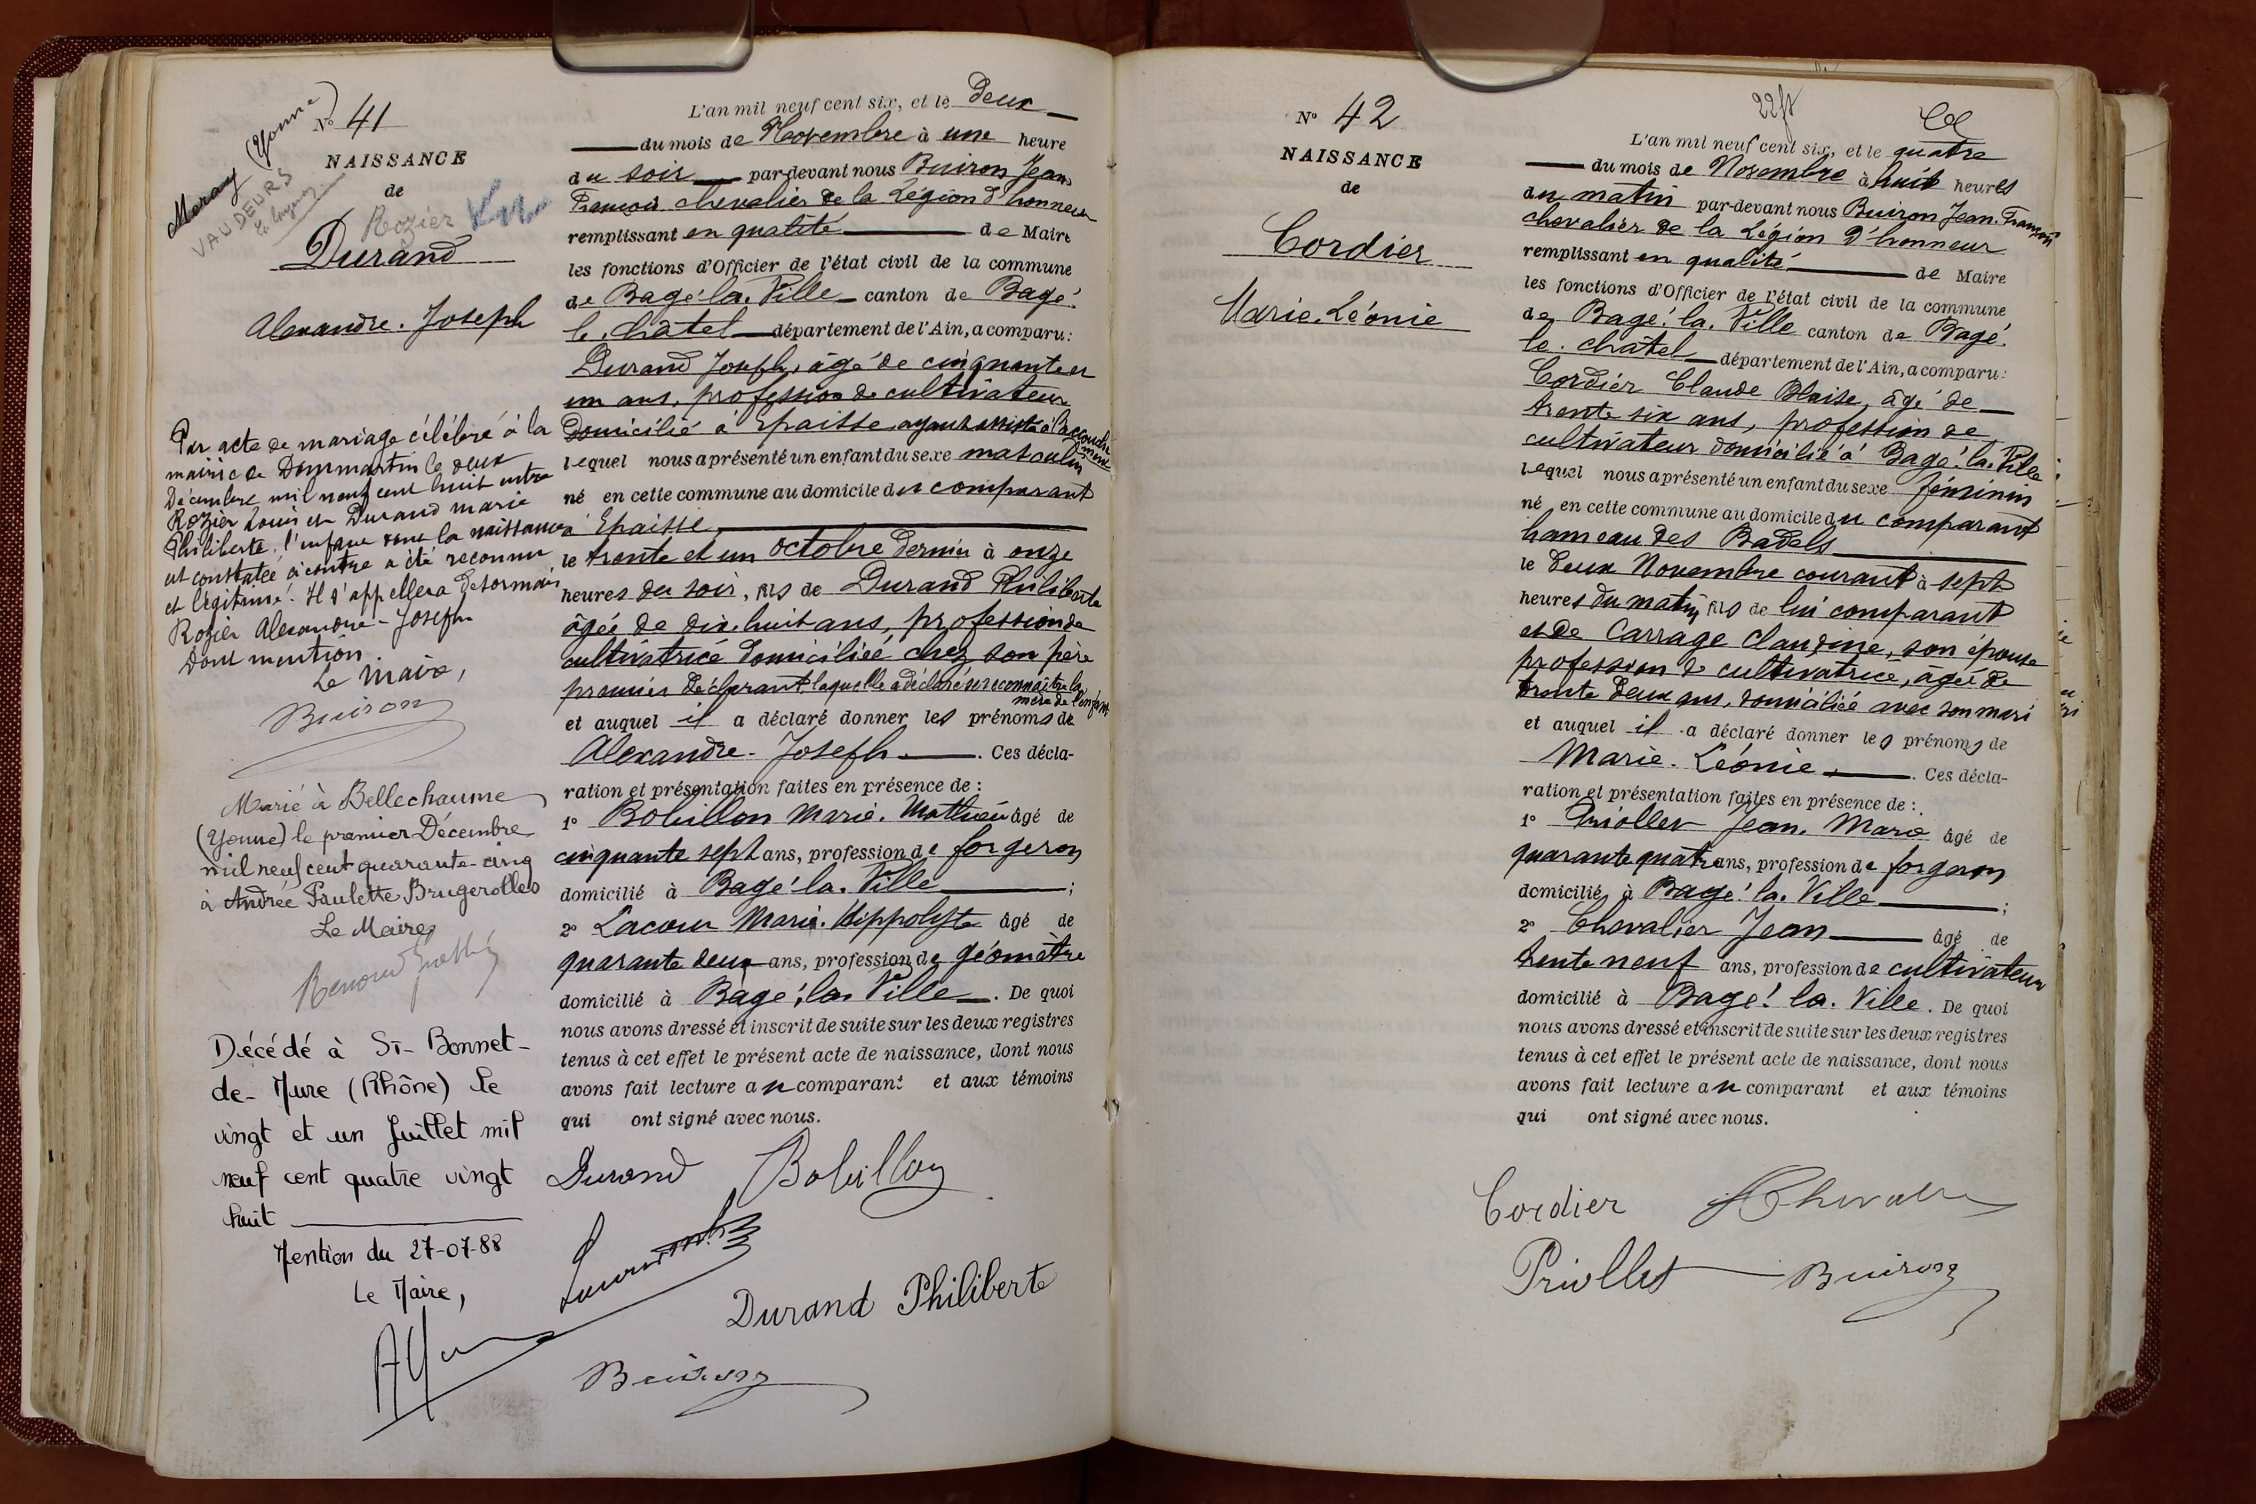 Maray (Yonne)
VAUDEURS
No 41
NAISSANCE
de
Rozier
Durand
Alexandre. Joseph
Par acte de mariage célébré à la
mairie de Dommartin le deux
Décembre mil neuf cent huit entre
Rozier Louis et Durand marie
Philiberte, l'enfant dont la naissance
est constatée ci contre a été reconnu
et légitimé. Il s'appellera désormais
Rozier Alexandre-Joseph
Dont mention
Le Maire,
Buiron
Marié à Bellechaume
(Yonne) le premier Décembre
mil neuf cent quarante-cinq
à Andrée Paulette Brugerolles
Le Maire
Décédé à St-Bonnet-
de-Mure (Rhône) le
vingt et un Juillet mil
neuf cent quatre vingt
huit
Mention du 27-07-88
Le Maire,
L'an mil neuf cent six, et le deux
du mois de Novembre à une heure
du soir par-devant nous Buiron Jean
François chevalier de la Légion d'honneur
remplissant en qualité de Maire
les fonctions d'Officier de l'état civil de la commune
de Bagé-la-Ville canton de Bagé-
le-Châtel département de l'Ain, a comparu:
Durand Joseph, âgé de cinquante et
un ans, profession de cultivateur
Domicilié à Epaisse ayant assisté à l'accouchement
lequel nous a présenté un enfant du sexe masculin
né en cette commune au domicile du comparant
à Epaisse
le trente et un octobre dernier à onze
heures du soir, fils de Durand Philiberte
âgée de dix-huit ans, profession de
cultivatrice domiciliée chez son père
premier déclarant laquelle a déclaré se reconnaître la
mère de l'enfant
et auquel il a déclaré donner les prénoms de
Alexandre-Joseph. Ces décla-
ration et présentation faites en présence de :
1o Bobillon Marie. Mathieu âgé de
cinquante sept ans, profession de forgeron
domicilié à Bagé-la-Ville ;
2o Lacour Marie. Hippolyte âgé de
quarante deux ans, profession de géomètre
domicilié à Bagé-la-Ville. De quoi
nous avons dressé et inscrit de suite sur les deux registres
tenus à cet effet le présent acte de naissance, dont nous
avons fait lecture au comparant et aux témoins
qui ont signé avec nous.
Durand Bobillon
Durand Philiberte
Buiron
No 42
NAISSANCE
de
Cordier
Marie. Léonie
L'an mil neuf cent six, et le quatre
du mois de Novembre à huit heures
du matin par-devant nous Buiron Jean-François
chevalier de la Légion d'honneur
remplissant en qualité de Maire
les fonctions d'Officier de l'état civil de la commune
de Bagé-la-Ville canton de Bagé-
le-châtel département de l'Ain, a comparu:
Cordier Claude Blaise, âgé de
trente six ans, profession de
cultivateur domicilié à Bagé-la-Ville
lequel nous a présenté un enfant du sexe féminin
né en cette commune au domicile du comparant
hameau des Badels
le deux Novembre courant à sept
heures du matin, fils de lui comparant
et de Carrage Claudine, son épouse
profession de cultivatrice, âgée de
trente deux ans, domiciliée avec son mari
et auquel il a déclaré donner les prénoms de
Marie. Léonie. Ces décla-
ration et présentation faites en présence de :
1o Priollet Jean. Marie âgé de
quarante quatre ans, profession de forgeron
domicilié à Bagé-la-Ville ;
2o Chevalier Jean âgé de
trente neuf ans, profession de cultivateur
domicilié à Bagé-la-Ville. De quoi
nous avons dressé et inscrit de suite sur les deux registres
tenus à cet effet le présent acte de naissance, dont nous
avons fait lecture au comparant et aux témoins
qui ont signé avec nous.
Cordier Chevalier
Priollet Buiron